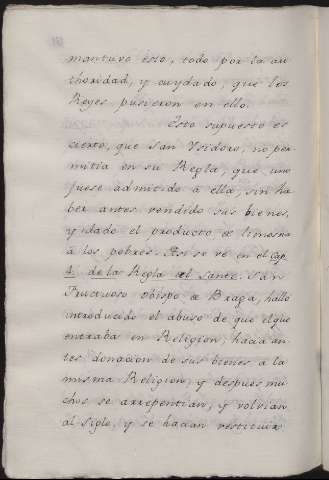 mantuvo esto, todo por la au
thoridad, y cuydado, que los
Reyes pusieron en ello.
Esto supuesto es
cierto, que San Ysidoro, no per
mitia en su Regla, que uno
fuese admitido á ella, sin ha
ber antes vendido sus bienes,
y dado el producto de limosna
á los pobres. Asi se vé en el Cap.
4. de la Regla del Santo. San
Fructuoso obispo de Braga, halló
introducido el abuso de que el que
entraba en Religion, hacia an
tes donacion de sus bienes á la
misma Religion, y despues mu
chos se arrepentian, y volvian
al siglo, y se hacian restituir